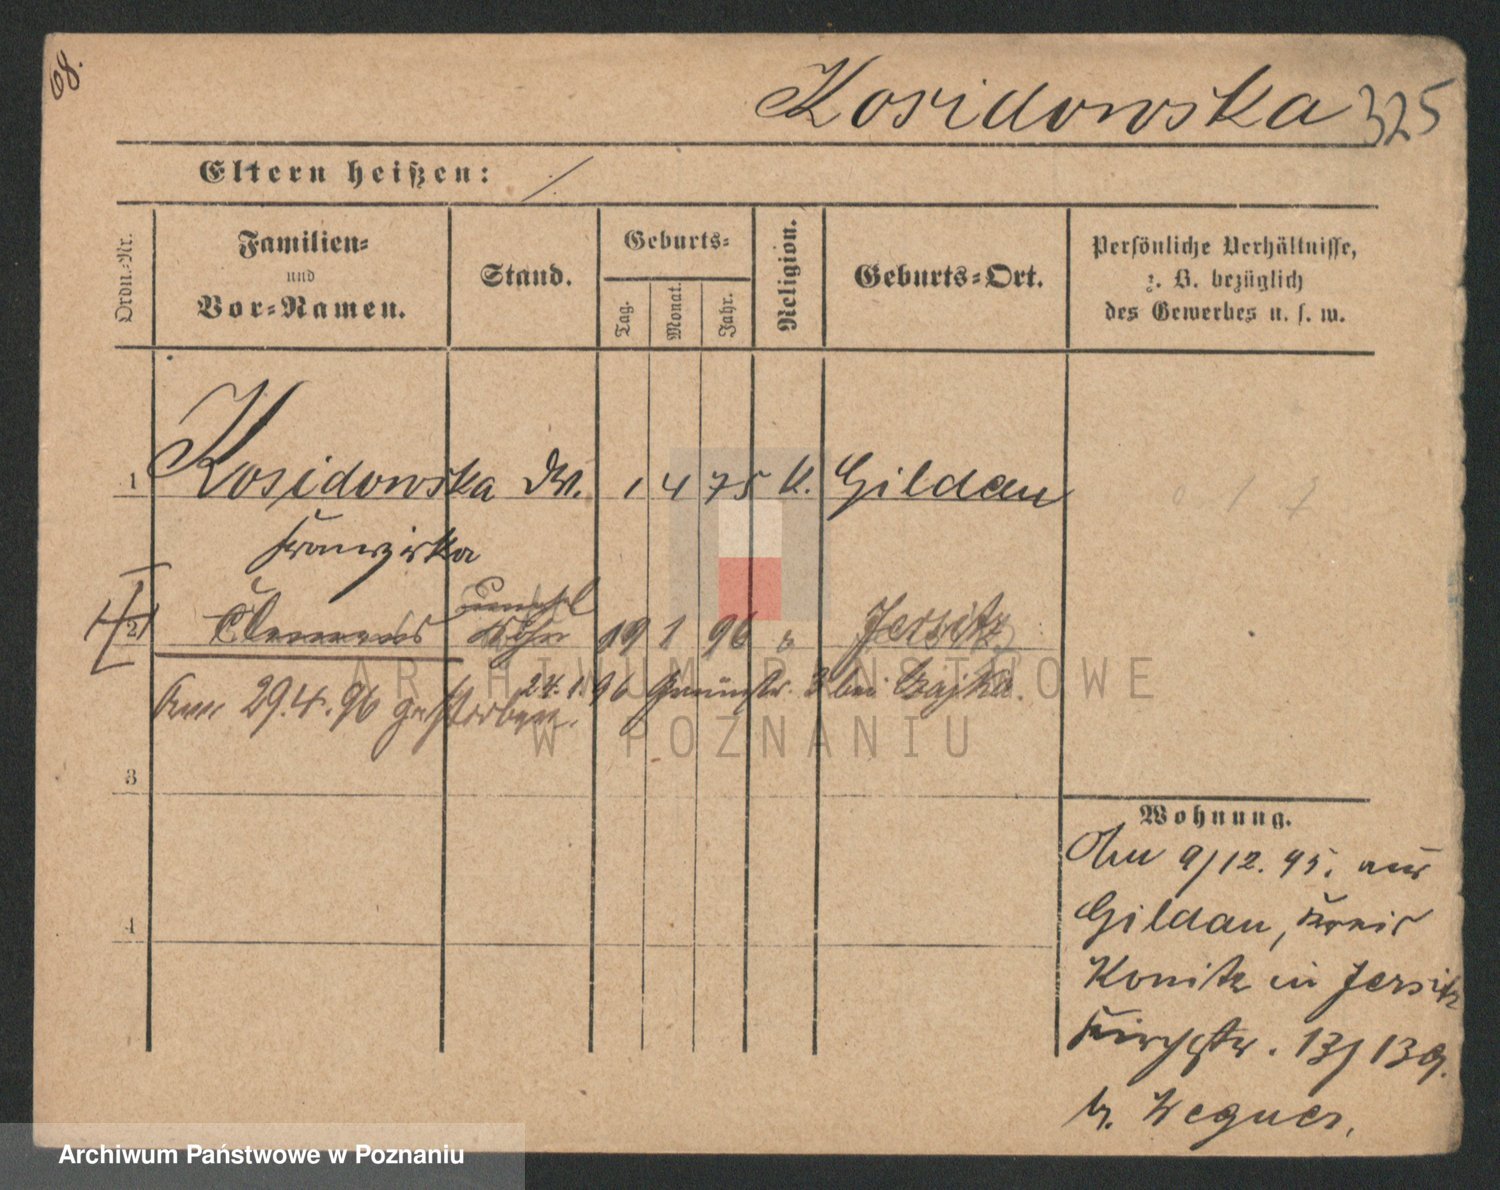 68.
Kosidowska 325
Eltern heißen: /
Ordn.-Nr.
Familien-
und
Vor-Namen.
Stand.
Geburts-
Tag.
Monat.
Jahr.
Religion.
Geburts-Ort.
Persönliche Verhältnisse,
z. B. bezüglich
des Gewerbes u. s. w.
1 Kosidowska 1 4 75 k. Gildau
Franziska
2 Clemens Sohn 19 1 96 Jersitz
24.1.96 3 bei Gajka.
Am 29.4.96 gestorben.
3
4
Wohnung.
Am 9/12.95. aus
Gildau, Kreis
Konitz in Jersitz
Kirchstr. 13/139.
b. Wegner.
ARCHIWUM PAŃSTWOWE
W POZNANIU
Archiwum Państwowe w Poznaniu